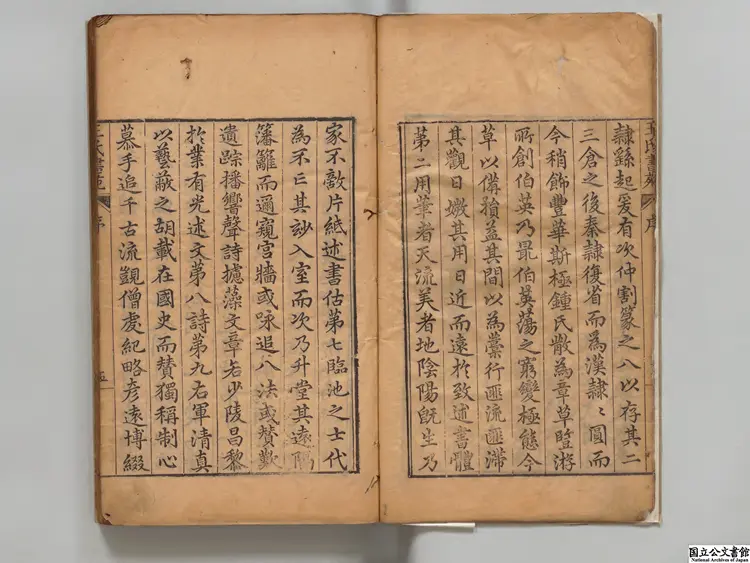 王氏書苑 序
隷繇起爰有次仲割篆之八以存其二
三倉之後秦隷復省而爲漢隷〻圓而
今稍飾豐華斯極鍾氏散為章草暨游
所創伯英乃最伯英蕩之窮變極態今
草以僃損益其間以為藁行匪流匪滯
其觀日媺其用日近而遠於致述書體
第二用筆者天流美者地陰陽旣生乃
家不敵片紙述書估第七臨池之士代
為不亡其玅入室而次乃升堂其遠隔
籓籬而邇窺宮牆或咏追八法或賛歎
遺踪播響聲詩攄藻文章若少陵昌黎
於業有光述文第八詩第九右軍清真
以藝蔽之胡載在國史而賛獨稱制心
慕手追千古流觀僧虔紀略彦遠博綴
王氏書苑 序 五
国立公文書館
National Archives of Japan